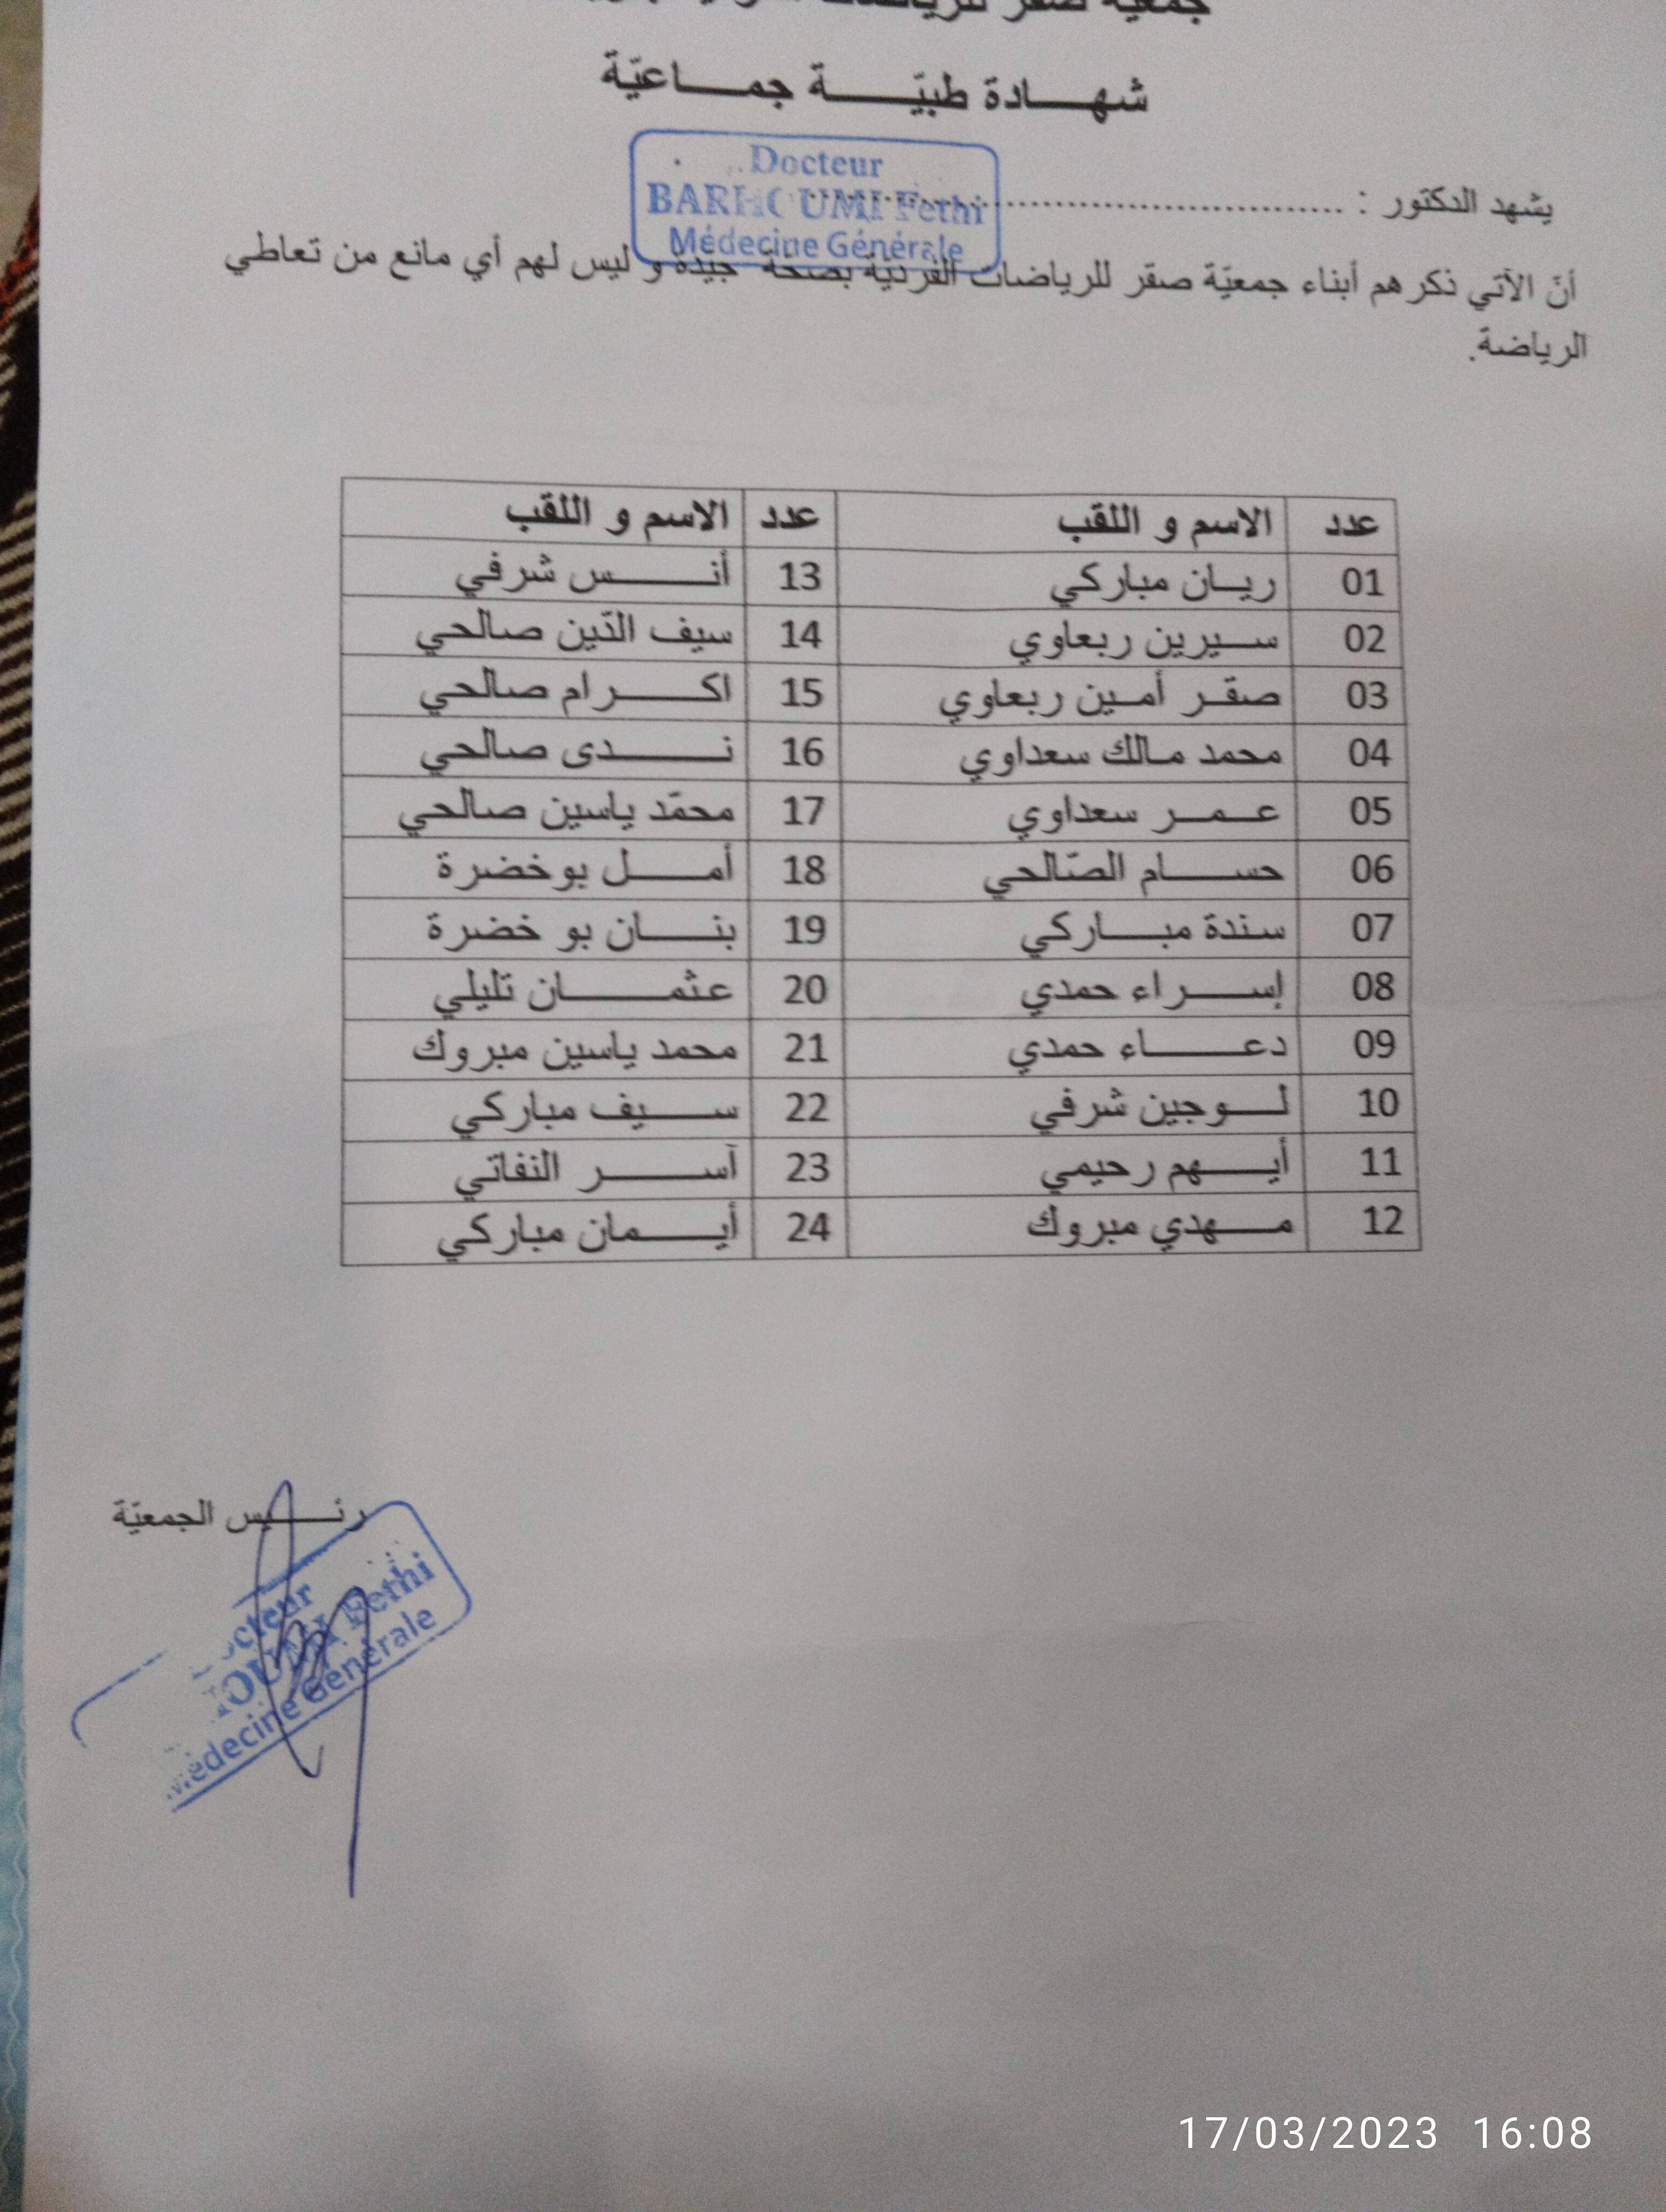 جمعيّة صقر للرياضات
شهـــادة طبيّــــة جمـــاعيّة
Docteur
BARHOUMI Fethi
Médecine Générale
يشهد الدكتور : ..............................................
أنّ الآتي ذكرهم أبناء جمعيّة صقر للرياضات الفرديّة بصحّة جيّدة و ليس لهم أي مانع من تعاطي
الرياضة.
عدد الاسم و اللقب عدد الاسم و اللقب
01 ريـان مباركي 13 أنـــــس شرفي
02 سـيرين ربعاوي 14 سيف الدّين صالحي
03 صقـر أمـين ربعاوي 15 اكــــرام صالحي
04 محمد مـالك سعداوي 16 نـــــدى صالحي
05 عــمــر سعداوي 17 محمّد ياسين صالحي
06 حســـام الصّالحي 18 أمــــل بوخضرة
07 سندة مبـــاركي 19 بنـــان بو خضرة
08 إســــراء حمدي 20 عثمـــــان تليلي
09 دعـــــاء حمدي 21 محمد ياسين مبروك
10 لـــوجين شرفي 22 ســـيف مباركي
11 أيـــهم رحيمي 23 آســـــر النفاتي
12 مـــهدي مبروك 24 أيـــمان مباركي
رئـــــيس الجمعيّة
octeur
HOUMI Fethi
Médecine Générale
17/03/2023 16:08